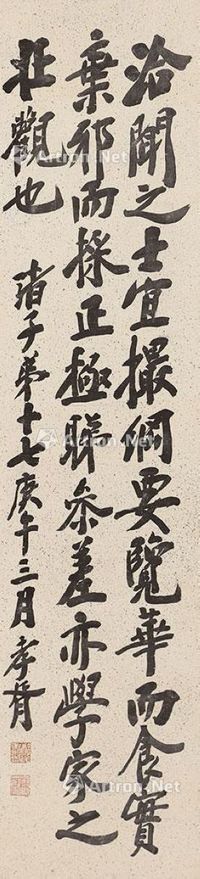 洽聞之士宜撮綱要覽華而食實
棄邪而採正極睇參差亦學家之
壯觀也
諸子弟十七庚午三月孝胥
Artron.Net